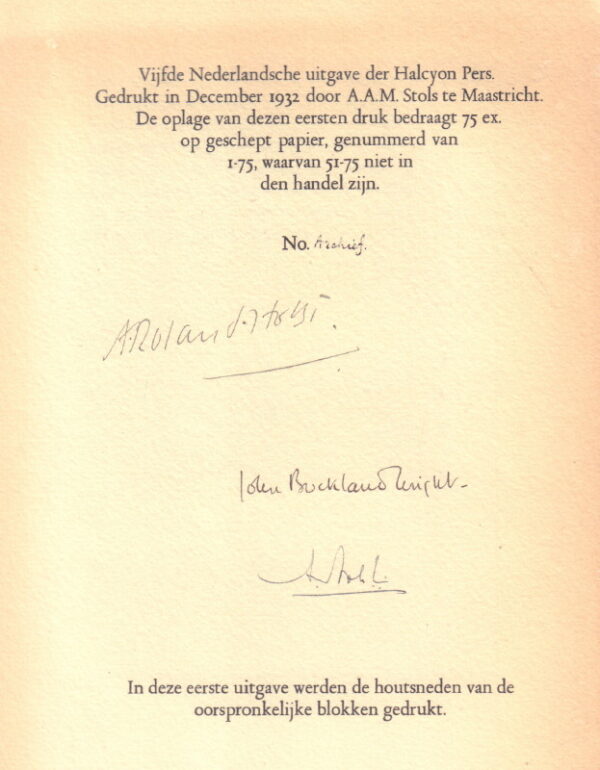 Vijfde Nederlandsche uitgave der Halcyon Pers.
Gedrukt in December 1932 door A.A.M. Stols te Maastricht.
De oplage van dezen eersten druk bedraagt 75 ex.
op geschept papier, genummerd van
1-75, waarvan 51-75 niet in
den handel zijn.
No. Archief.
A. Roland Holst.
John Buckland Wright-
A. Stols
In deze eerste uitgave werden de houtsneden van de
oorspronkelijke blokken gedrukt.